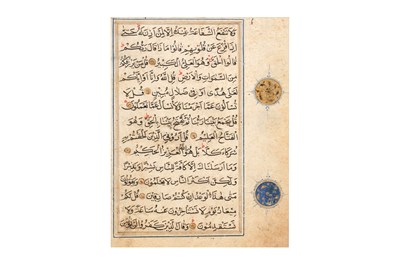 ولا تنفع الشفاعة عنده إلا لمن أذن له حتى
إذا فزع عن قلوبهم قالوا ماذا قال ربكم
قالوا الحق وهو العلي الكبير قل من يرزقكم
من السموات والأرض قل الله وإنا أو إياكم
لعلى هدى أو في ضلال مبين قل لا
تسألون عما أجرمنا ولا نسأل عما تعملون
قل يجمع بيننا ربنا ثم يفتح بيننا بالحق وهو
الفتاح العليم قل أروني الذين ألحقتم به
شركاء كلا بل هو الله العزيز الحكيم
وما أرسلناك إلا كافة للناس بشيرا ونذيرا
ولكن أكثر الناس لا يعلمون ويقولون
متى هذا الوعد إن كنتم صادقين قل لكم
ميعاد يوم لا تستأخرون عنه ساعة ولا
تستقدمون وقال الذين كفروا